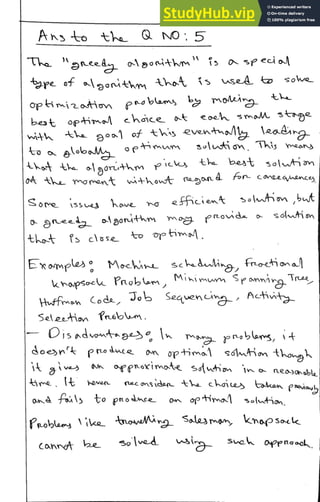 StudyHub.vip
Experienced writers
On-time delivery
100% plagiarism free
Ans to the Q NO: 5
The "greedy algorithm" is a special
type of algorithm that is used to solve
optimization problems by making the
best optimal choice at each small stage
with the goal of this eventually leading
to a globally optimum solution. This means
that the algorithm picks the best solution
at the moment without regard for consequences
Some issues have no efficient solution, but
a greedy algorithm may provide a solution
that is close to optimal.
Examples: Machine scheduling, Fractional
knapsack Problem, Minimum Spanning Tree,
Huffman Code, Job Sequencing, Activity
Selection Problem.
- Disadvantages: In many problems, it
doesn't produce an optimal solution though
it gives an approximate solution in a reasonable
time. It never reconsider the choices taken previously
and fails to produce an optimal solution.
Problems like travelling Salesman, knapsack
cannot be solved using such approach.